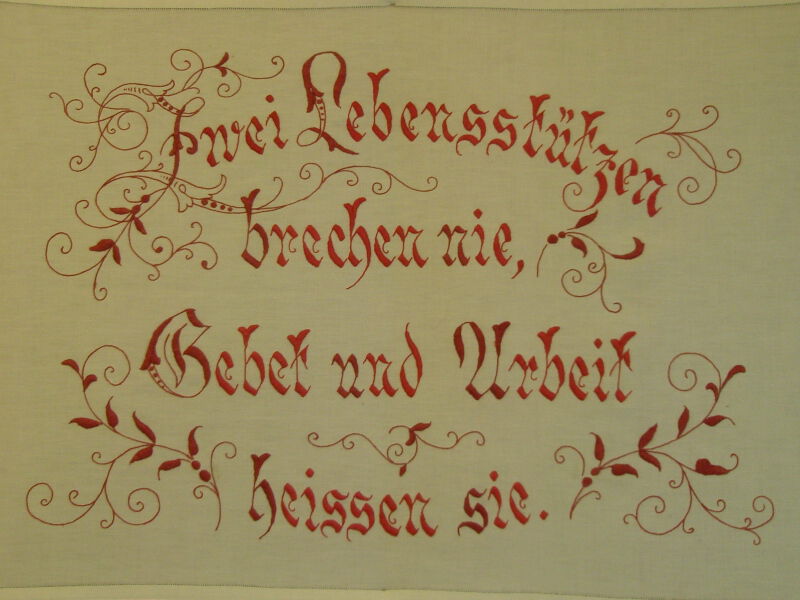 Zwei Lebensstützen
brechen nie,
Gebet und Arbeit
heissen sie.